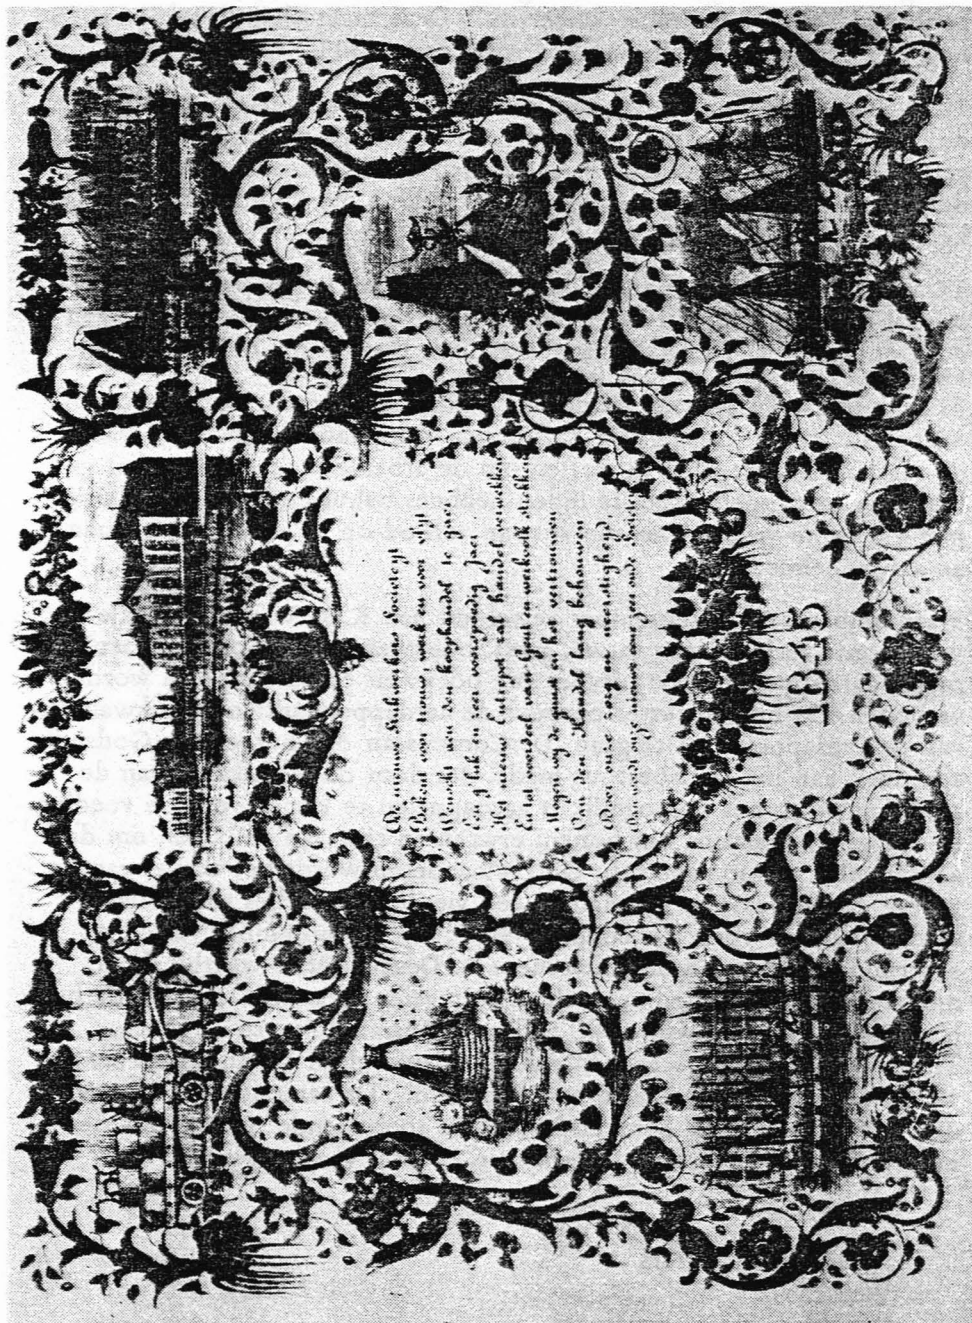 De nieuwe Buildragers Societeyt
Bekent voor trouw, werk en voor vlyt
Wenscht aen den koophandel te gaer
Een g'lukkig en een voorspoedig Jaer
Het nieuw Entrepot zal handel verwekken
En tot voordeel van Gent en werkvolk strekken
Mogen wy de gunst en het vertrouwen
Van den Handel lang behouwen
Door onze zorg en neerstigheyd
Dan wordt onze nieuwe ook een oude Societeyt
1845